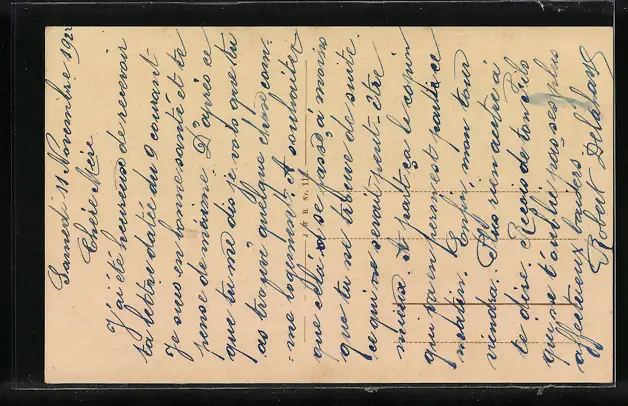 Samedi 11 Novembre 192
Chère Mère
J'ai été heureux de recevoir
ta lettre datée du 9 courant
Je suis en bonne santé et te
pense de même. D'après ce
que tu me dis je vois que tu
as trouvé quelque chose com-
-me logement. A souhaiter
que cela se passe à moins
que tu ne trouve de suite.
ce qui ne serait peut-être
mieux. A part ça le copin
qui va en perm est parti ce
matin. Enfin, mon tour
viendra. Plus rien autre à
te dire. Reçois de ton Fils
qui ne t'oublie pas ses plus
affectueux baisers
Robert
J. & B. No.